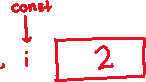 const
, i 2